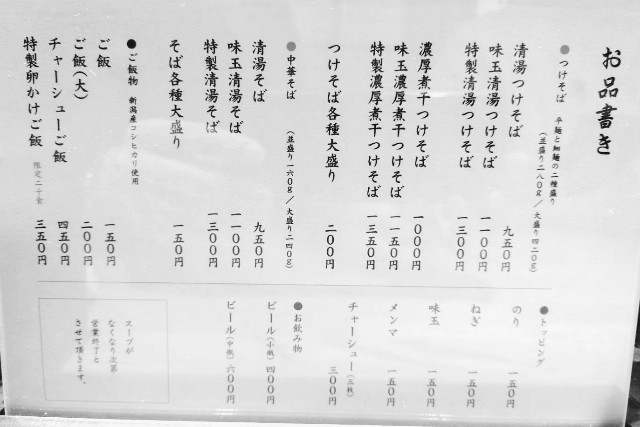 お品書き
●つけそば 平麺と細麺の二種盛り
(並盛り二八〇g/大盛り四二〇g)
清湯つけそば 九五〇円
味玉清湯つけそば 一一〇〇円
特製清湯つけそば 一三〇〇円
濃厚煮干つけそば 一〇〇〇円
味玉濃厚煮干つけそば 一一五〇円
特製濃厚煮干つけそば 一三五〇円
つけそば各種大盛り 二〇〇円
●中華そば (並盛り一六〇g/大盛り二四〇g)
清湯そば 九五〇円
味玉清湯そば 一一〇〇円
特製清湯そば 一三〇〇円
そば各種大盛り 一五〇円
●ご飯物 新潟産コシヒカリ使用
ご飯 一五〇円
ご飯(大) 二〇〇円
チャーシューご飯 四五〇円
特製卵かけご飯 限定二十食 三五〇円
●トッピング
のり 一五〇円
ねぎ 一五〇円
味玉 一五〇円
メンマ 一五〇円
チャーシュー(三枚) 三〇〇円
●お飲み物
ビール(小瓶) 四〇〇円
ビール(中瓶) 六〇〇円
スープが
なくなり次第
営業終了と
させて頂きます。